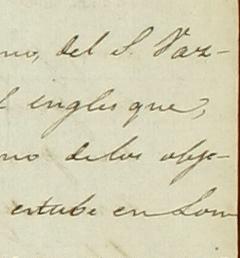 no, del S. Vaz-
l ingles que,
no de los obje-
estube en Lon